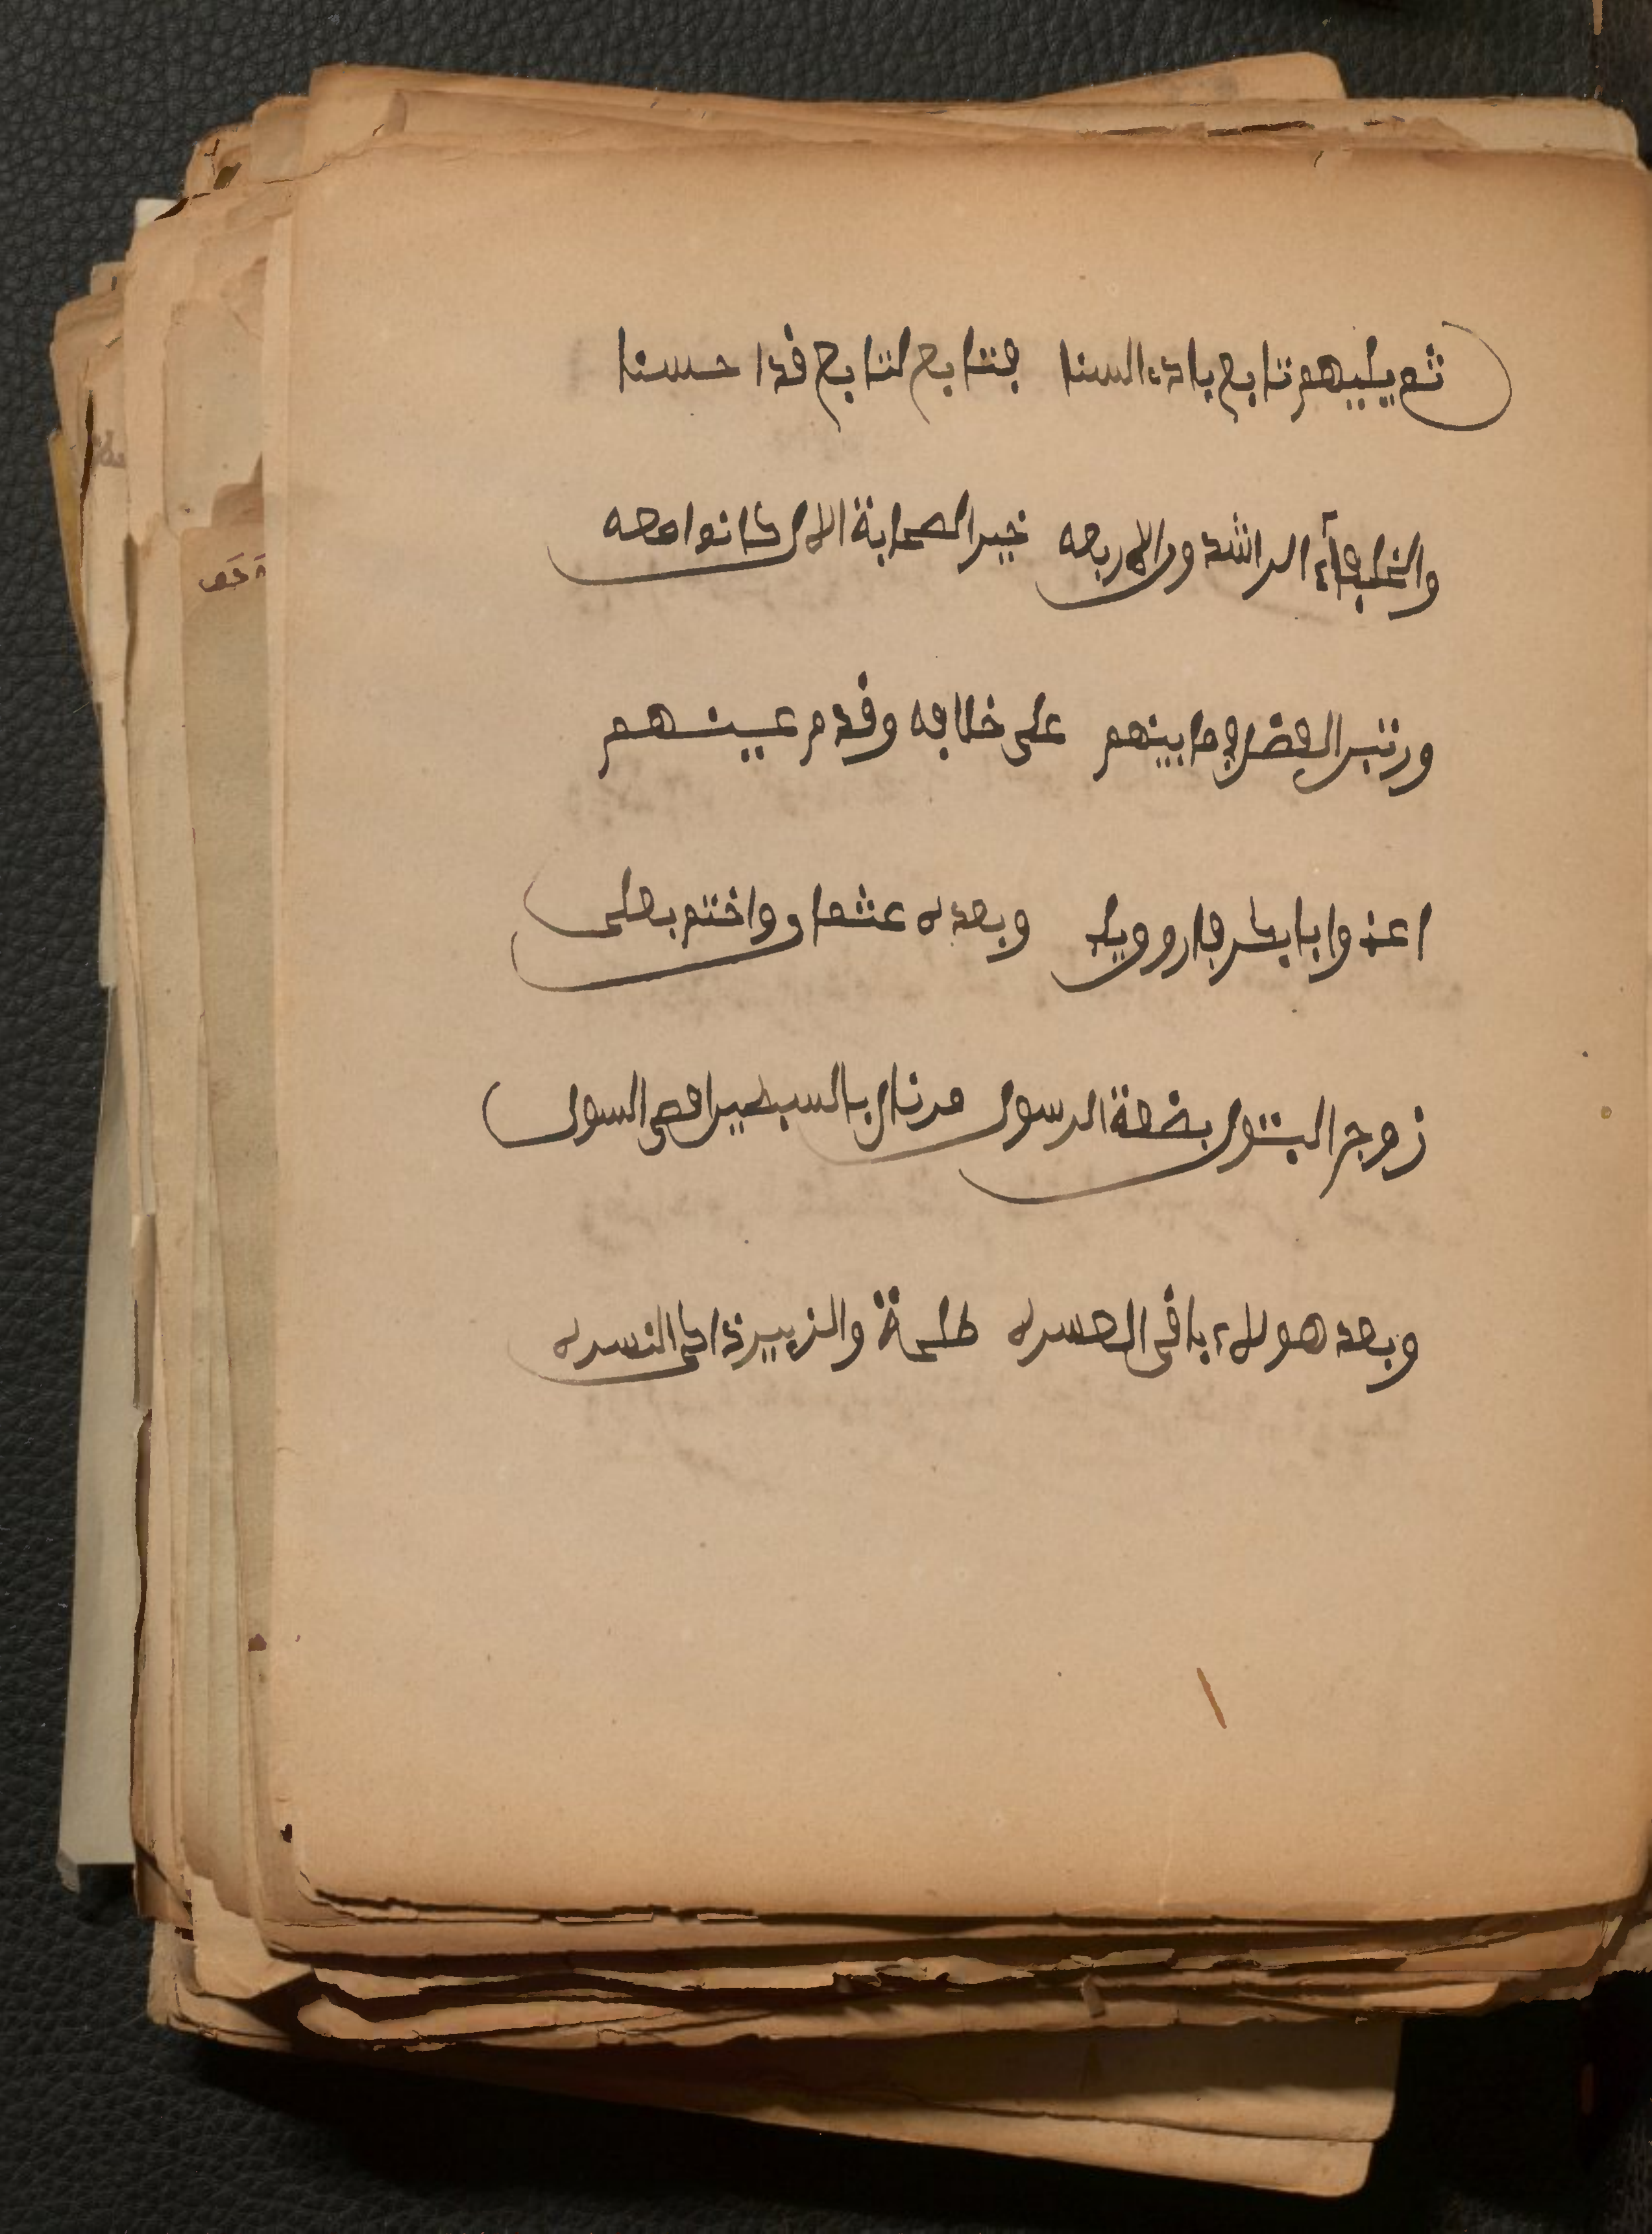 ثم يليهم تابع باد السنا فتابع لتابع قد احسنا
والخلفآء الراشدون الاربعه خير الصحابة الالى كانوا معه
ورتبن الفضل فيما بينهم على خلافه وقدم عينهم
اعنى ابا بكر فاروق يلى وبعده عثمان واختم بعلى
زوج البتول بضعة الرسول من نال بالسبطين اقصى السول
وبعد هولاء باقى العسره طلحة والزبير ذاكى النسره